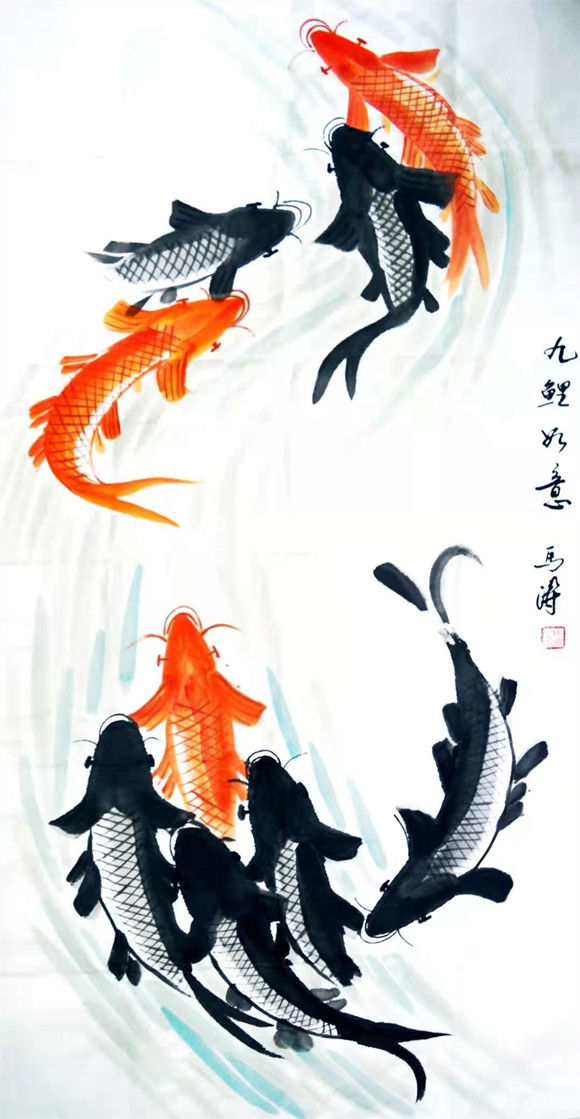 九鲤如意 马涛